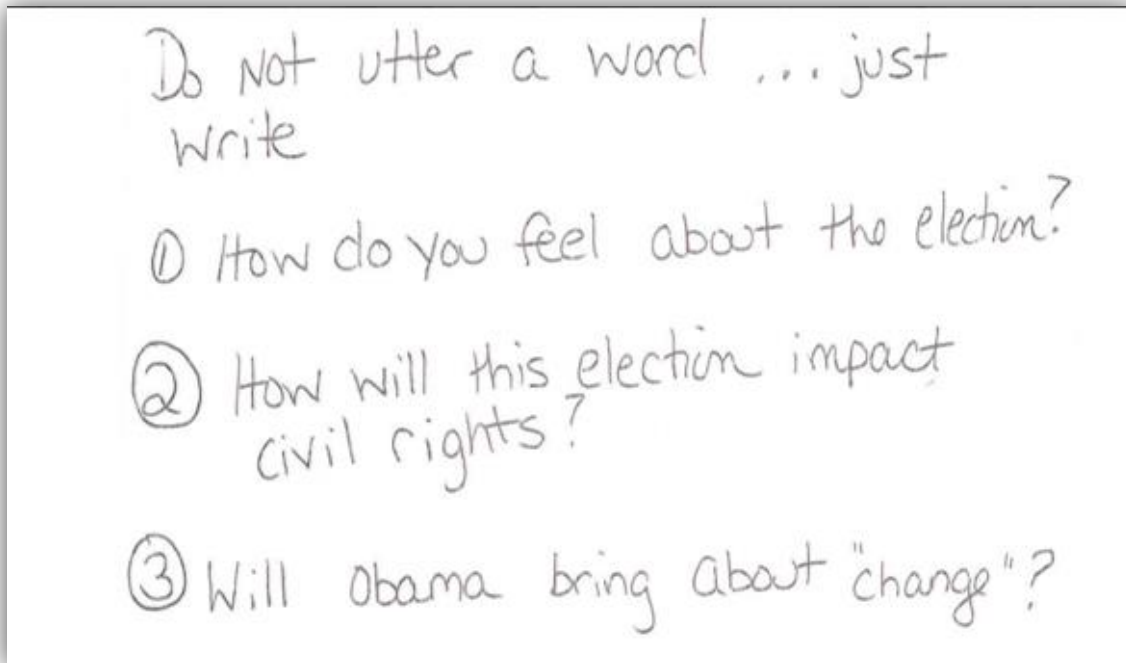 Do Not utter a word ... just
write
① How do you feel about the election?
② How will this election impact
civil rights?
③ Will Obama bring about "change"?